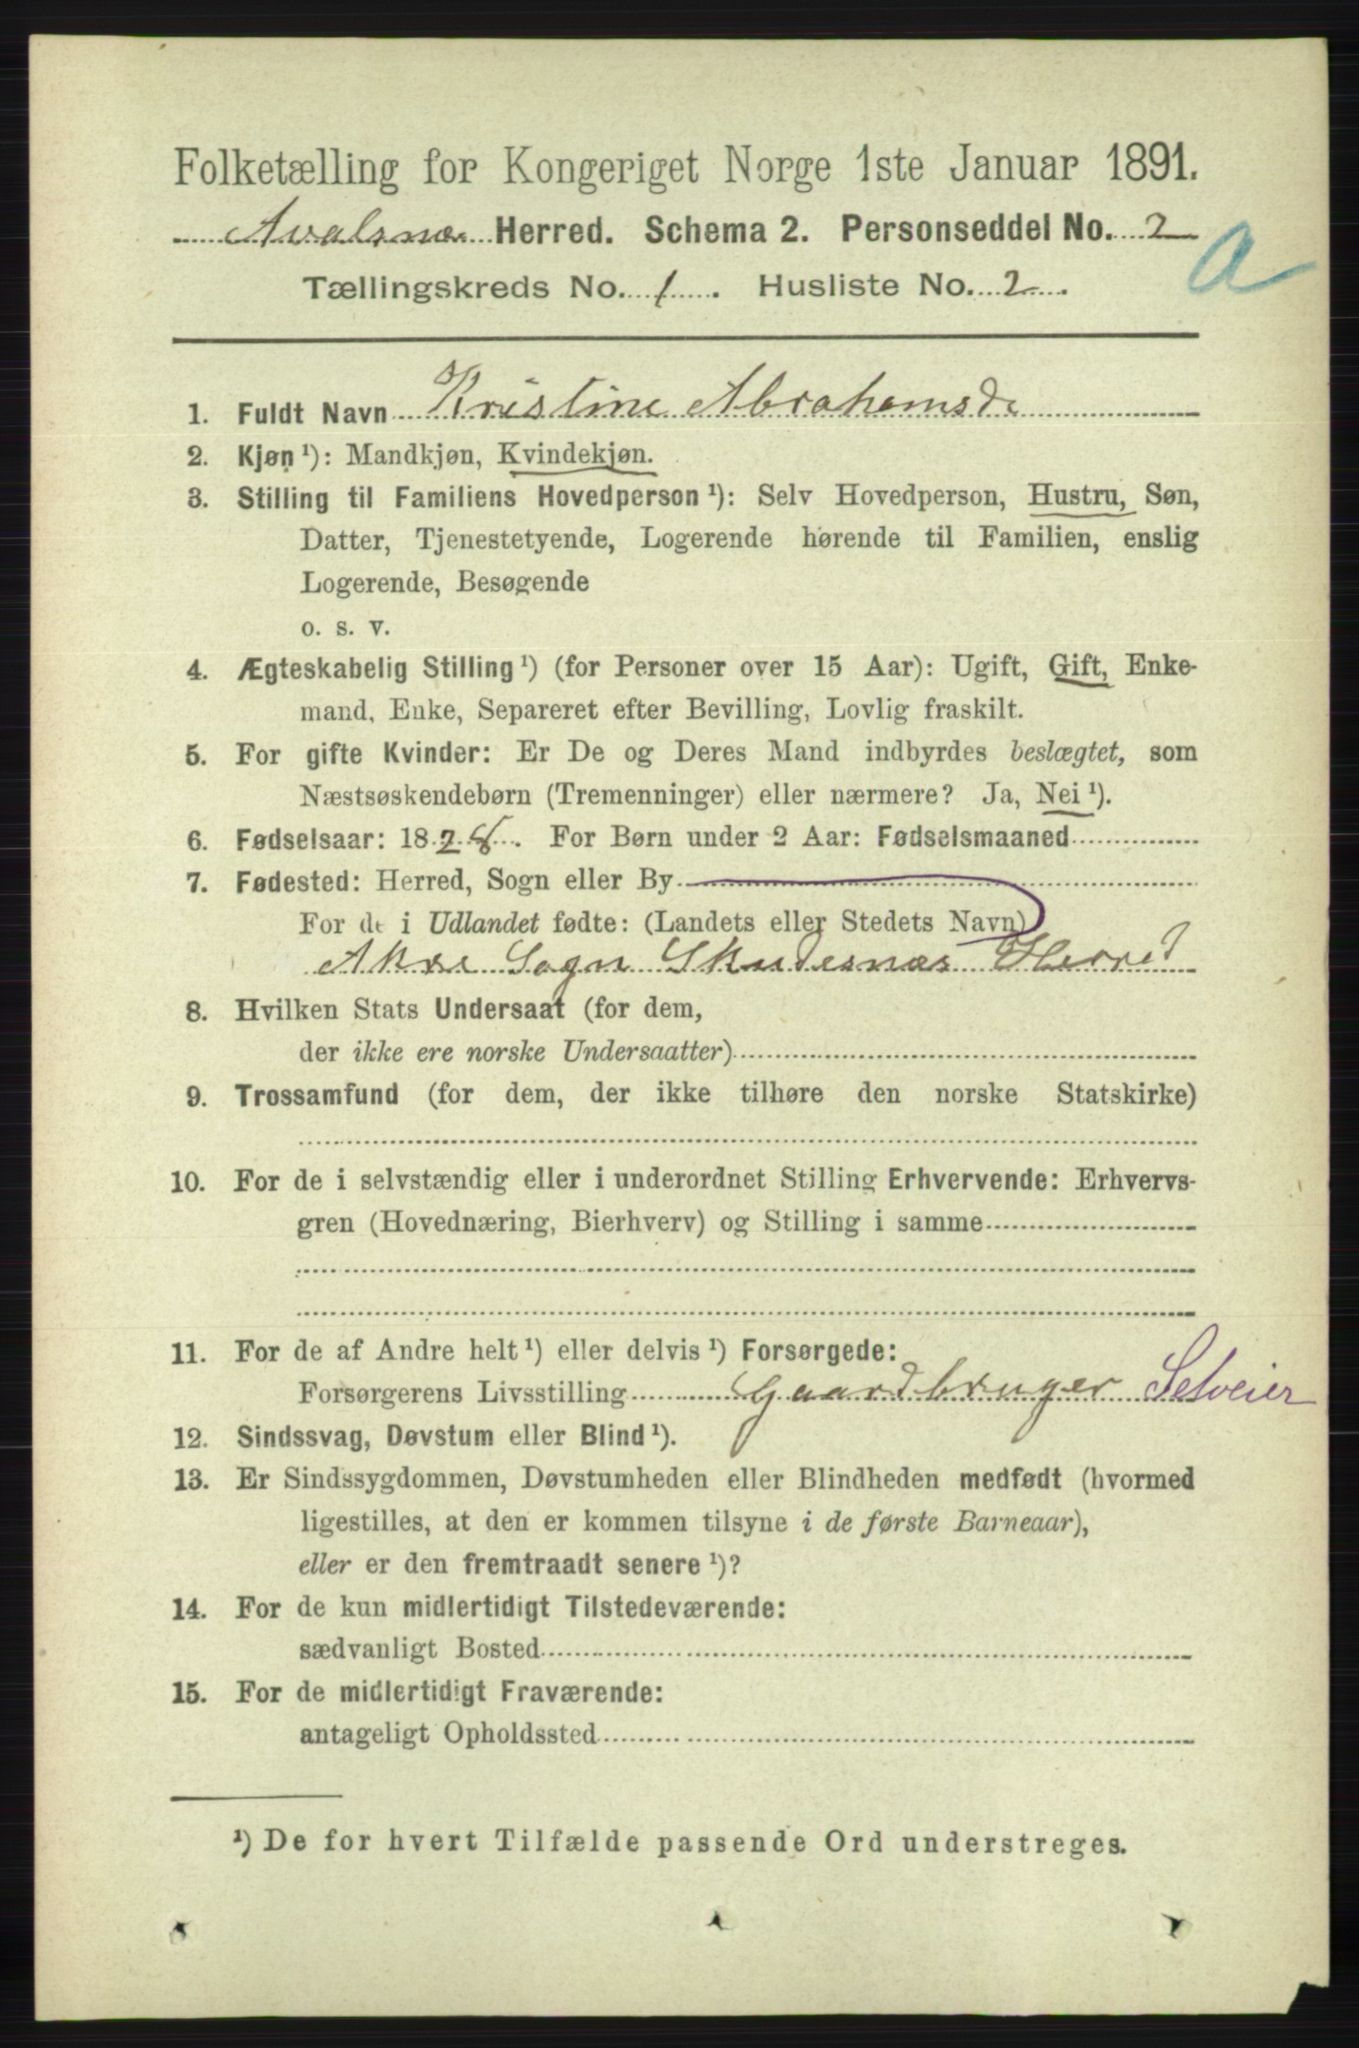 Folketælling for Kongeriget Norge 1ste Januar 1891.
Avalsnes Herred. Schema 2. Personseddel No. 2
a
Tællingskreds No. 1. Husliste No. 2.
1. Fuldt Navn Kristine Abrahamsd
2. Kjøn ¹): Mandkjøn, Kvindekjøn.
3. Stilling til Familiens Hovedperson ¹): Selv Hovedperson, Hustru, Søn,
Datter, Tjenestetyende, Logerende hørende til Familien, enslig
Logerende, Besøgende
o. s. v.
4. Ægteskabelig Stilling ¹) (for Personer over 15 Aar): Ugift, Gift, Enke-
mand, Enke, Separeret efter Bevilling, Lovlig fraskilt.
5. For gifte Kvinder: Er De og Deres Mand indbyrdes beslægtet, som
Næstsøskendebørn (Tremenninger) eller nærmere? Ja, Nei ¹).
6. Fødselsaar: 182. For Børn under 2 Aar: Fødselsmaaned
7. Fødested: Herred, Sogn eller By
For de i Udlandet fødte: (Landets eller Stedets Navn)
Akre Sogn Skudesnæs Herred
8. Hvilken Stats Undersaat (for dem,
der ikke ere norske Undersaatter)
9. Trossamfund (for dem, der ikke tilhøre den norske Statskirke)
10. For de i selvstændig eller i underordnet Stilling Erhvervende: Erhvervs-
gren (Hovednæring, Bierhverv) og Stilling i samme
11. For de af Andre helt ¹) eller delvis ¹) Forsørgede:
Forsørgerens Livsstilling Gaardbruger Selveier
12. Sindssvag, Døvstum eller Blind ¹).
13. Er Sindssygdommen, Døvstumheden eller Blindheden medfødt (hvormed
ligestilles, at den er kommen tilsyne i de første Barneaar),
eller er den fremtraadt senere ¹)?
14. For de kun midlertidigt Tilstedeværende:
sædvanligt Bosted
15. For de midlertidigt Fraværende:
antageligt Opholdssted
¹) De for hvert Tilfælde passende Ord understreges.